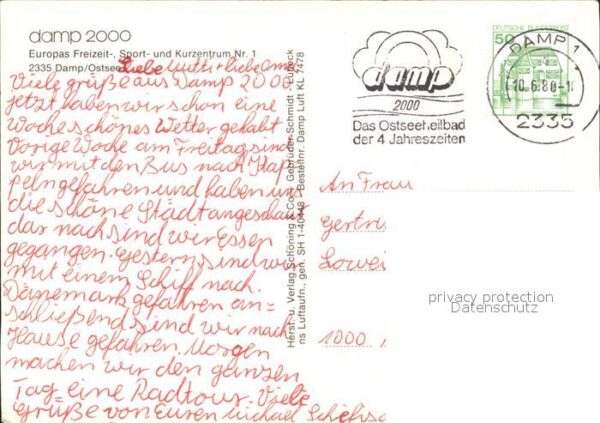 damp 2000
Europas Freizeit-, Sport- und Kurzentrum Nr. 1
2335 Damp/Ostsee
Liebe Mutti + liebe Oma
Viele grüße aus Damp 2000
jetzt haben wir schon eine
Woche schönes Wetter gehabt
Vorige Woche am Freitag sind
wir mit den Bus nach Kap
peln gefahren und haben uns
die schöne Stadt angeschaut
dar nach sind wir Essen
gegangen. Gestern sind wir
mit einem Schiff nach
Dänemark gefahren an=
schließend sind wir nach
Hause gefahren. Morgen
machen wir den ganzen
Tag eine Radtour. Viele
Grüße von Euren Michael
Herst. u. Verlag Schöning & Co + Gebrüder Schmidt, Lübeck
ns Luftaufn., gen. SH 1-40448 - Bestellnr. Damp Luft KL 7478
damp
2000
Das Ostseeheilbad
der 4 Jahreszeiten
DEUTSCHE BUNDESPOST
50
DAMP 1
10.6.80-1
2335
An Frau
Gertru
Lowei
1000
privacy protection
Datenschutz